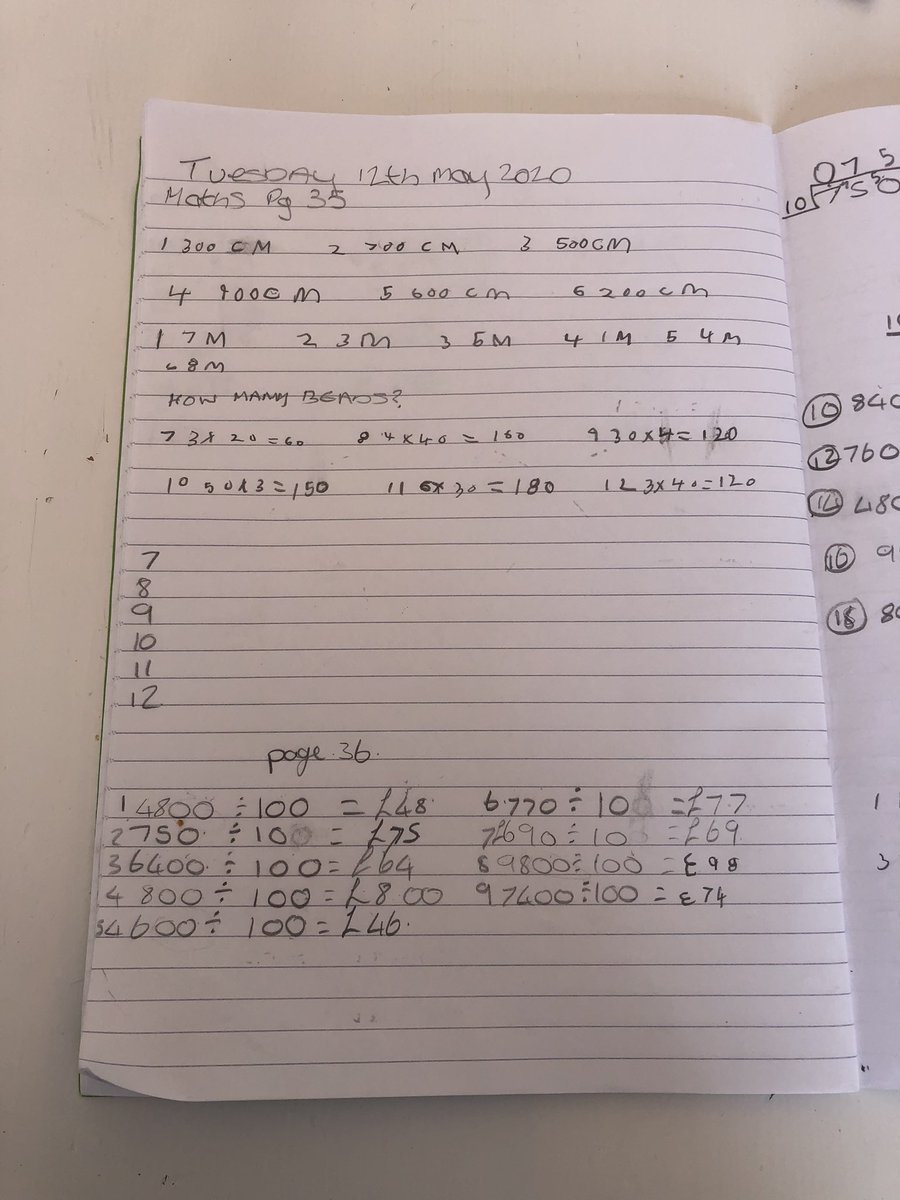 Tuesday 12th May 2020
Maths Pg 35
1 300 CM 2 700 CM 3 500CM
4 900CM 5 600 cm 6 200cm
1 7M 2 3M 3 5M 4 1M 5 4M
6 8M
HOW MANY BEADS?
7 3x20=60 8 4x40=160 9 30x4=120
10 50x3=150 11 6x30=180 12 3x40=120
7
8
9
10
11
12
page 36.
1 4800 ÷ 100 = £48 6 770 ÷ 10 = £77
2 750 ÷ 10 = £75 7 690 ÷ 10 = £69
3 6400 ÷ 100 = £64 8 9800 ÷ 100 = £98
4 800 ÷ 100 = £800 9 7400 ÷ 100 = £74
5 4600 ÷ 100 = £46.
07 5
10 750
10 840
12 760
14 480
16 9
18 80
1
3